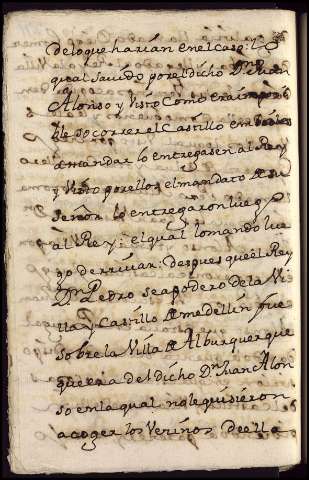 delo que harian en el caso: Lo
qual savido por el dicho Dn. Juan
Alonso y visto como era impos
ble socorrer el Castillo
mandar lo entregasen al Rey
y visto por ellos el mandato de su
señor lo entregaron luego
al Rey; el qual lo mando lue
go derrivar: despues que el Rey
Dn. Pedro se apodero de la Vi
lla y Castillo de medellin fue
sobre la Villa de Alburquerque
que era del dicho Dn. Juan Alon
so en la qual no le quisieron
acoger los Vecinos de ella